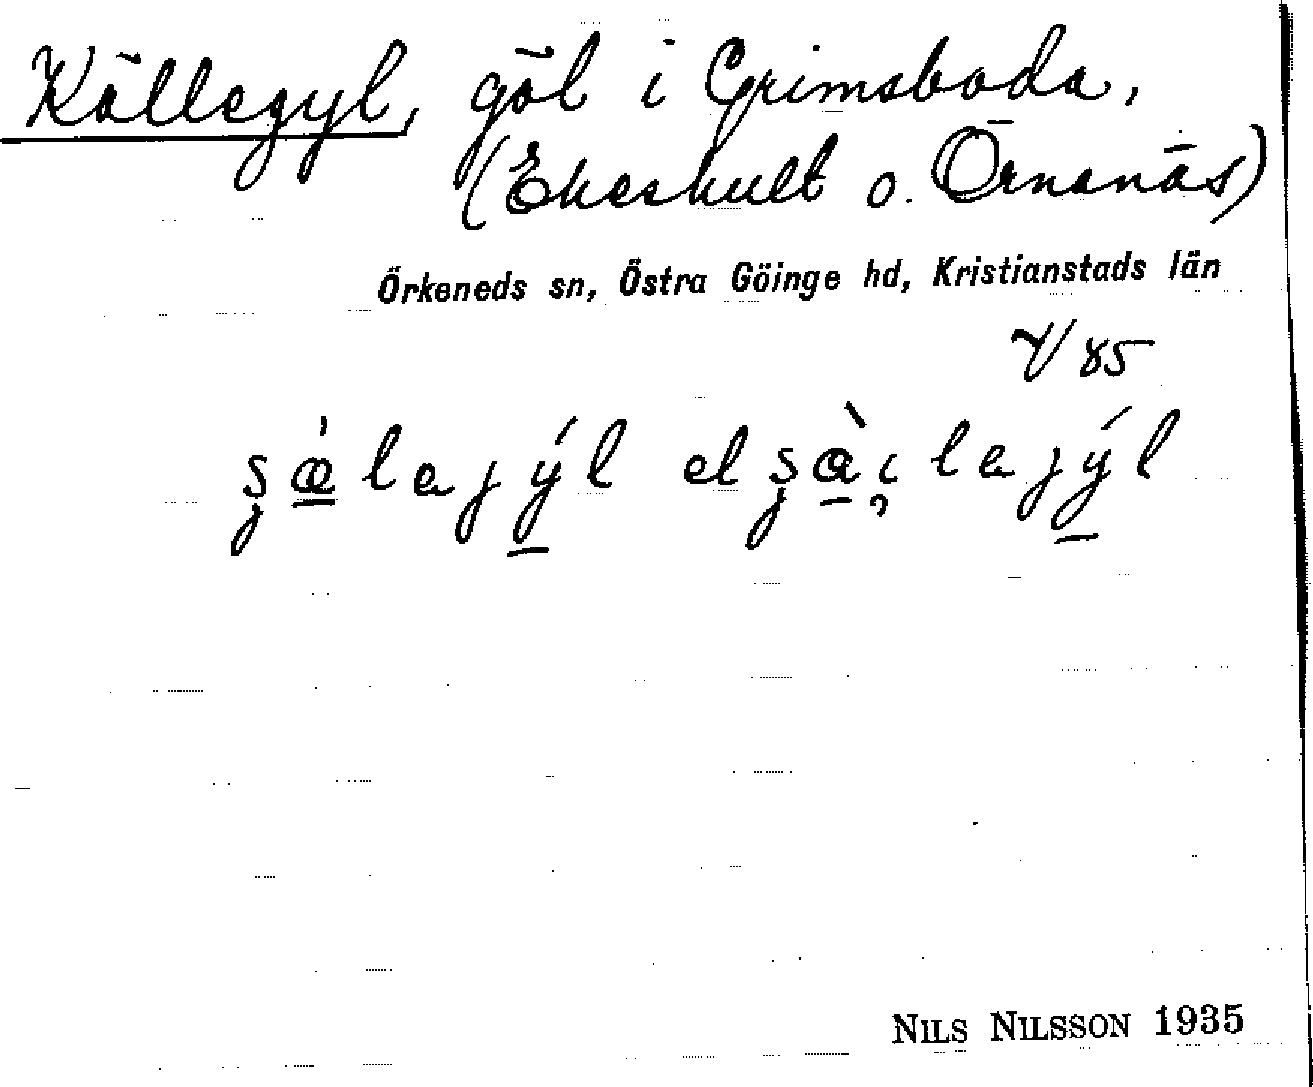 Källegyl, göl i Grimsboda,
(Ekeskult o. Örnanäs)
Örkeneds sn, Östra Göinge hd, Kristianstads län
V 85
el
NILS NILSSON 1935